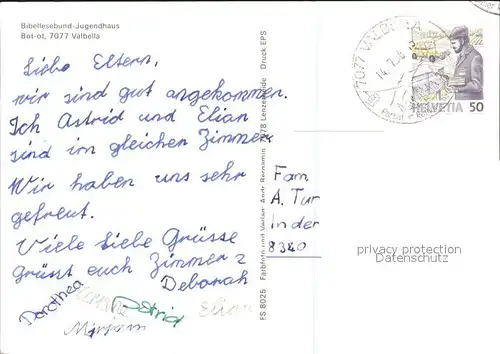 Bibellesebund-Jugendhaus
Bot-ot, 7077 Valbella
Liebe Eltern,
wir sind gut angekommen.
Ich Astrid und Elian
sind im gleichen Zimmer.
Wir haben uns sehr
gefreut.
Viele liebe Grüsse
Grüsst euch Zimmer 2
Deborah
Dorothea
Astrid
Elian
Mirjam
FS 8025 Farbfoto und Verlag: Andr. 7078 Lenzerheide Druck EPS
7077 VALBELLA
HELVETIA 50
Fam.
A. Tur
In der
8340
privacy protection
delcampe.net